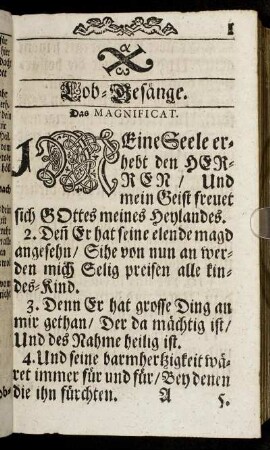 1
Lob-Gesänge.
Das MAGNIFICAT.
1. MEine Seele er-
hebt den HER-
REN / Und
mein Geist freuet
sich GOttes meines Heylandes.
2. Deñ Er hat seine elende magd
angesehn / Sihe von nun an wer-
den mich Selig preisen alle kin-
des-Kind.
3. Denn Er hat grosse Ding an
mir gethan / Der da mächtig ist /
Und des Nahme heilig ist.
4. Und seine barmhertzigkeit wä-
ret immer für und für / Bey denen
die ihn fürchten. A 5.